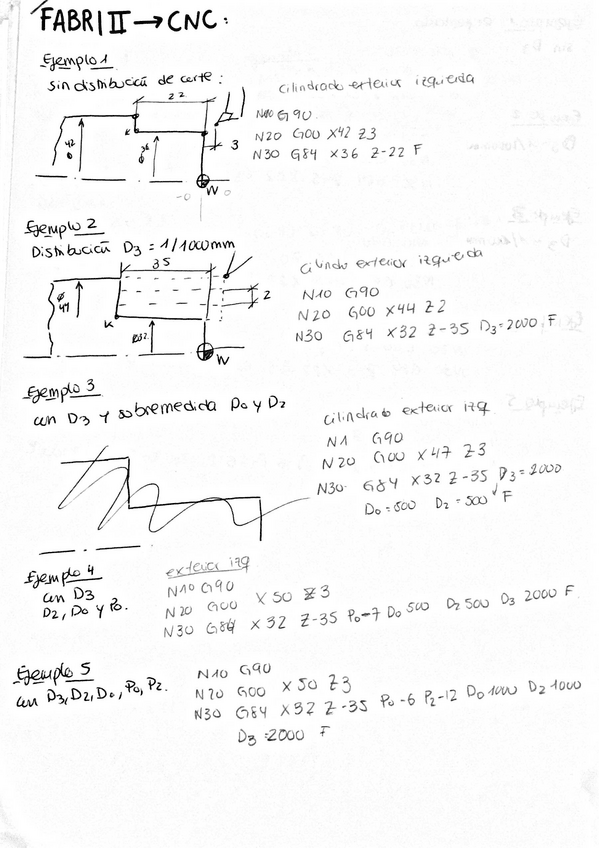 FABRI II → CNC:
Ejemplo 1
sin distribución de corte:
cilindrado exterior izquierda
22
N10 G90
N20 G00 X42 Z3
N30 G84 X36 Z-22 F
K
3
42
ϕ
W
-0
0
Ejemplo 2
Distribución D3 = 1/1000mm
35
cilindro exterior izquierda
N10 G90
N20 G00 X44 Z2
N30 G84 X32 Z-35 D3=2000, F
ϕ
2
K
W
Ejemplo 3
con D3 y sobremedida D0 y D2
cilindrado exterior izq
N1 G90
N20 G00 X47 Z3
N30 G84 X32 Z-35 D3=2000
D0=500 D2=500 F
Ejemplo 4
con D3
D2, D0 y P0.
exterior izq
N10 G90
N20 G00 X50 Z3
N30 G84 X32 Z-35 P0-7 D0 500 D2 500 D3 2000 F.
Ejemplo 5
con D3, D2, D0, P0, P2.
N10 G90
N20 G00 X50 Z3
N30 G84 X32 Z-35 P0-6 P2-12 D0 1000 D2 1000
D3=2000 F